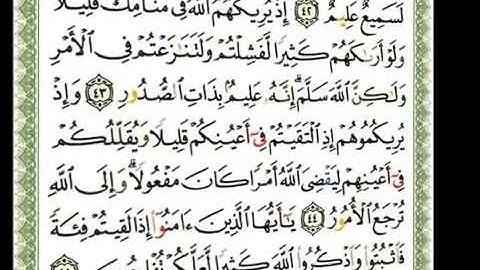 لَسَمِيعٌ عَلِيمٌ ٤٢ إِذْ يُرِيكَهُمُ ٱللَّهُ فِى مَنَامِكَ قَلِيلًا
وَلَوْ أَرَىٰكَهُمْ كَثِيرًا لَّفَشِلْتُمْ وَلَتَنَٰزَعْتُمْ فِى ٱلْأَمْرِ
وَلَٰكِنَّ ٱللَّهَ سَلَّمَ إِنَّهُۥ عَلِيمٌۢ بِذَاتِ ٱلصُّدُورِ ٤٣ وَإِذْ
يُرِيكُمُوهُمْ إِذِ ٱلْتَقَيْتُمْ فِىٓ أَعْيُنِكُمْ قَلِيلًا وَيُقَلِّلُكُمْ
فِىٓ أَعْيُنِهِمْ لِيَقْضِىَ ٱللَّهُ أَمْرًا كَانَ مَفْعُولًا وَإِلَى ٱللَّهِ
تُرْجَعُ ٱلْأُمُورُ ٤٤ يَٰٓأَيُّهَا ٱلَّذِينَ ءَامَنُوٓا۟ إِذَا لَقِيتُمْ فِئَةً
فَٱثْبُتُوا۟ وَٱذْكُرُوا۟ ٱللَّهَ كَثِيرًا لَّعَلَّكُمْ تُفْلِحُونَ ٤٥